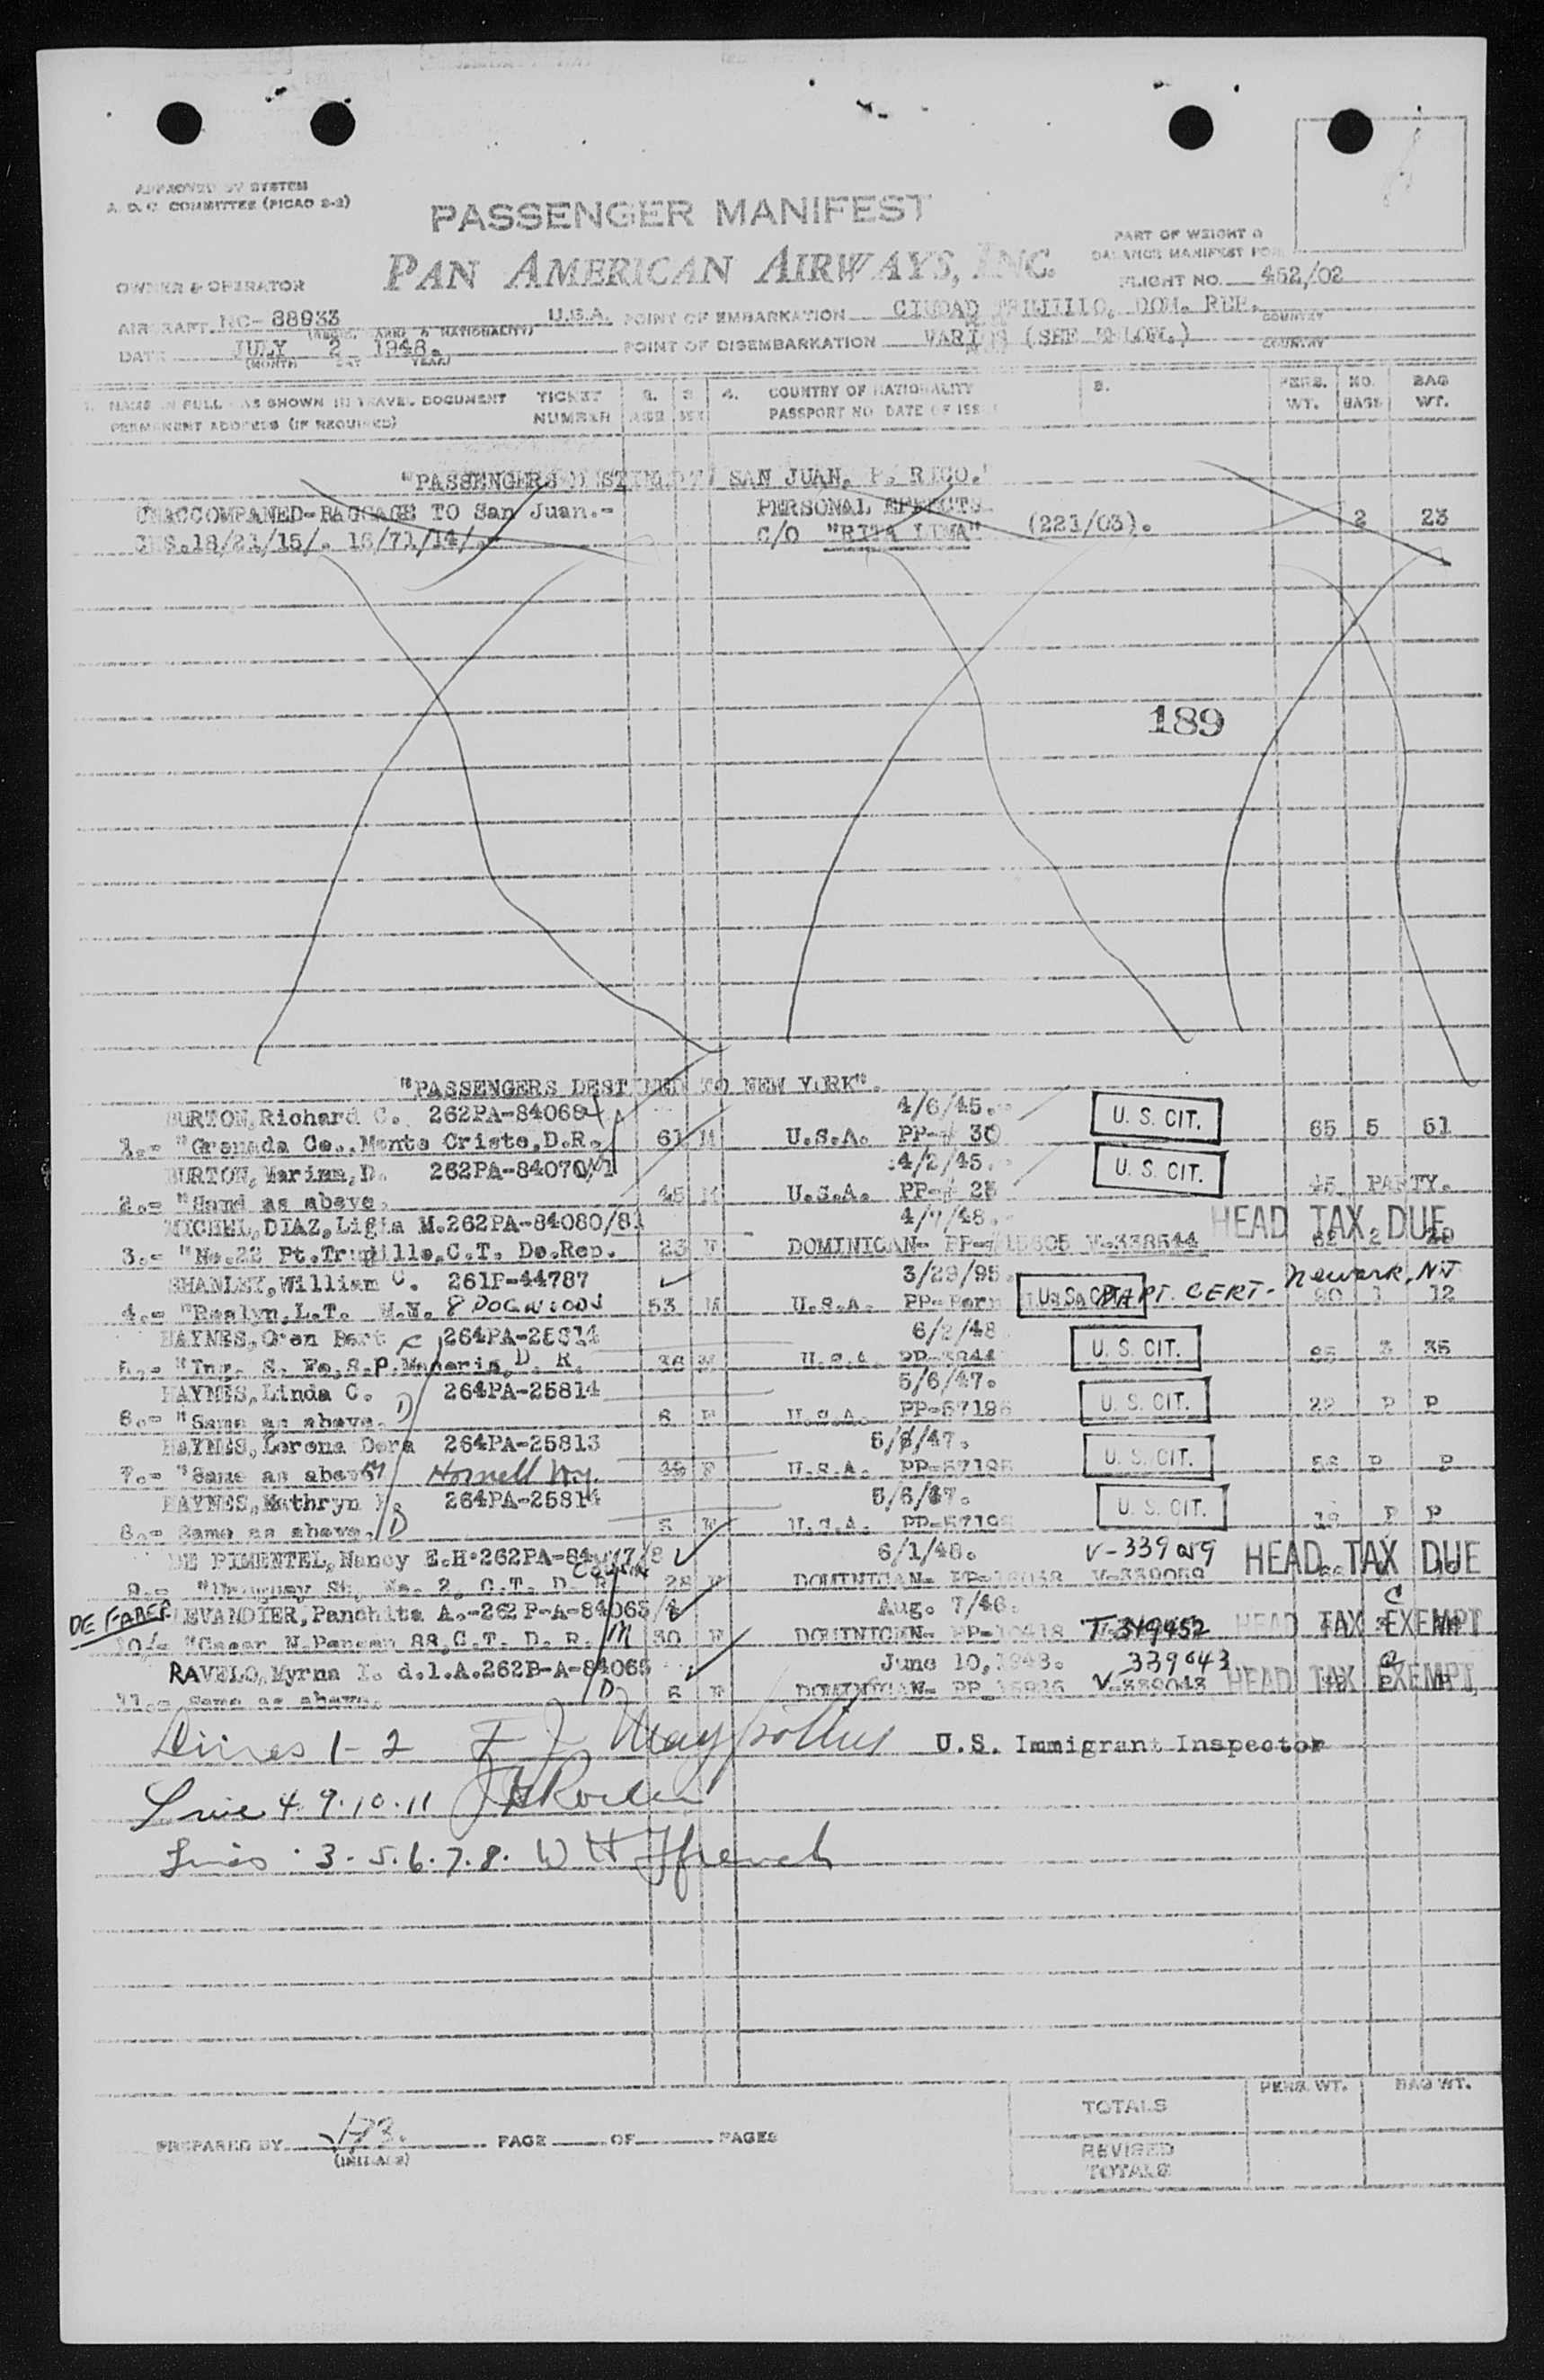 APPROVED BY SYSTEM
A. O. C. COMMITTEE (PICAO 2-2)
PASSENGER MANIFEST
PART OF WEIGHT &
BALANCE MANIFEST FOR
PAN AMERICAN AIRWAYS, INC.
FLIGHT NO. 452/02
OWNER & OPERATOR
AIRCRAFT NC-88933 U.S.A. POINT OF EMBARKATION CIUDAD TRUJILLO, DOM. REP. COUNTRY
DATE JULY 2 1948. POINT OF DISEMBARKATION VARIOS (SEE BELOW.) COUNTRY
(MONTH DAY YEAR)
1. NAME IN FULL AS SHOWN IN TRAVEL DOCUMENT TICKET 2. 3. 4. COUNTRY OF NATIONALITY 5. PERS. NO. BAG
PERMANENT ADDRESS (IF REQUIRED) NUMBER AGE SEX PASSPORT NO DATE OF ISS WT. BAGS WT.
"PASSENGERS DESTINED TO SAN JUAN, P. RICO."
UNACCOMPANED-BAGGAGE TO San Juan.- PERSONAL EFFECTS.
2 23
CHS.18/21/15/. 15/71/14/.- C/O "RITA LIMA" (221/03).
189
"PASSENGERS DESTINED TO NEW YORK".
BURTON, Richard C. 262PA-84069 4/6/45.
1.- "Grenada Co., Monte Cristo, D.R. 61 M U.S.A. PP-# 30 U. S. CIT. 65 5 51
BURTON, Marian, D. 262PA-84070 4/2/45.
2.- "Same as above. 45 U.S.A. PP-# 25 U. S. CIT. 45 PARTY.
MICHEL, DIAZ, Ligia M. 262PA-84080/81 4/7/48. HEAD TAX DUE
3.- "No.22 Pt. Trujillo, C.T. Do.Rep. 23 F DOMINICAN- V-338544 2
SHANLEY, William C. 261P-44787 3/29/95.
4.- "Roslyn, L.T. N.Y. 8 DOGWOOD 53 M U.S.A. PP-Born U. S. CIT. BAPT. CERT- Newark, NJ 1 12
HAYNES, Oren Bert C 264PA-25814 6/2/48
5.- S. P. Macoris, D. R. 36 M U.S.A. U. S. CIT. 3 35
HAYNES, Linda C. 264PA-25814 5/6/47.
6.- "Same as above. D 6 F U.S.A. PP-57196 U. S. CIT. 22 P P
HAYNES, Lorena Dora 264PA-25813 5/6/47.
7.- "Same as above M Hornell NY. F U.S.A. PP-57195 U. S. CIT. P P
HAYNES, Kathryn 264PA-25814 5/6/47.
8.- Same as above. D F U.S.A. U. S. CIT. P P
DE PIMENTEL, Nancy E.H. 262PA-84077/8 6/1/48. V-339059 HEAD TAX DUE
9.- "Uruguay St, No. 2, C.T. D. R. 28 F DOMINICAN- V-339059
DE FABER LEVANDIER, Panchita A.-262 P-A-84065/4 Aug. 7/46. C
10.- "Cesar N. Penson 88, C.T. D. R. M 30 F DOMINICAN- T-319452 HEAD TAX EXEMPT
RAVELO, Myrna I. d.l.A. 262P-A-84065 June 10, 1948. 339043
11.- Same as above. D F DOMINICAN- PP V-339043 HEAD TAX EXEMPT
Lines 1-2 U.S. Immigrant Inspector
Line 4. 9. 10. 11
Lines . 3. 5. 6. 7. 8. W H Ffrench
PREPARED BY PAGE OF PAGES
(INITIALS)
PERS. WT. BAG WT.
TOTALS
REVISED
TOTALS